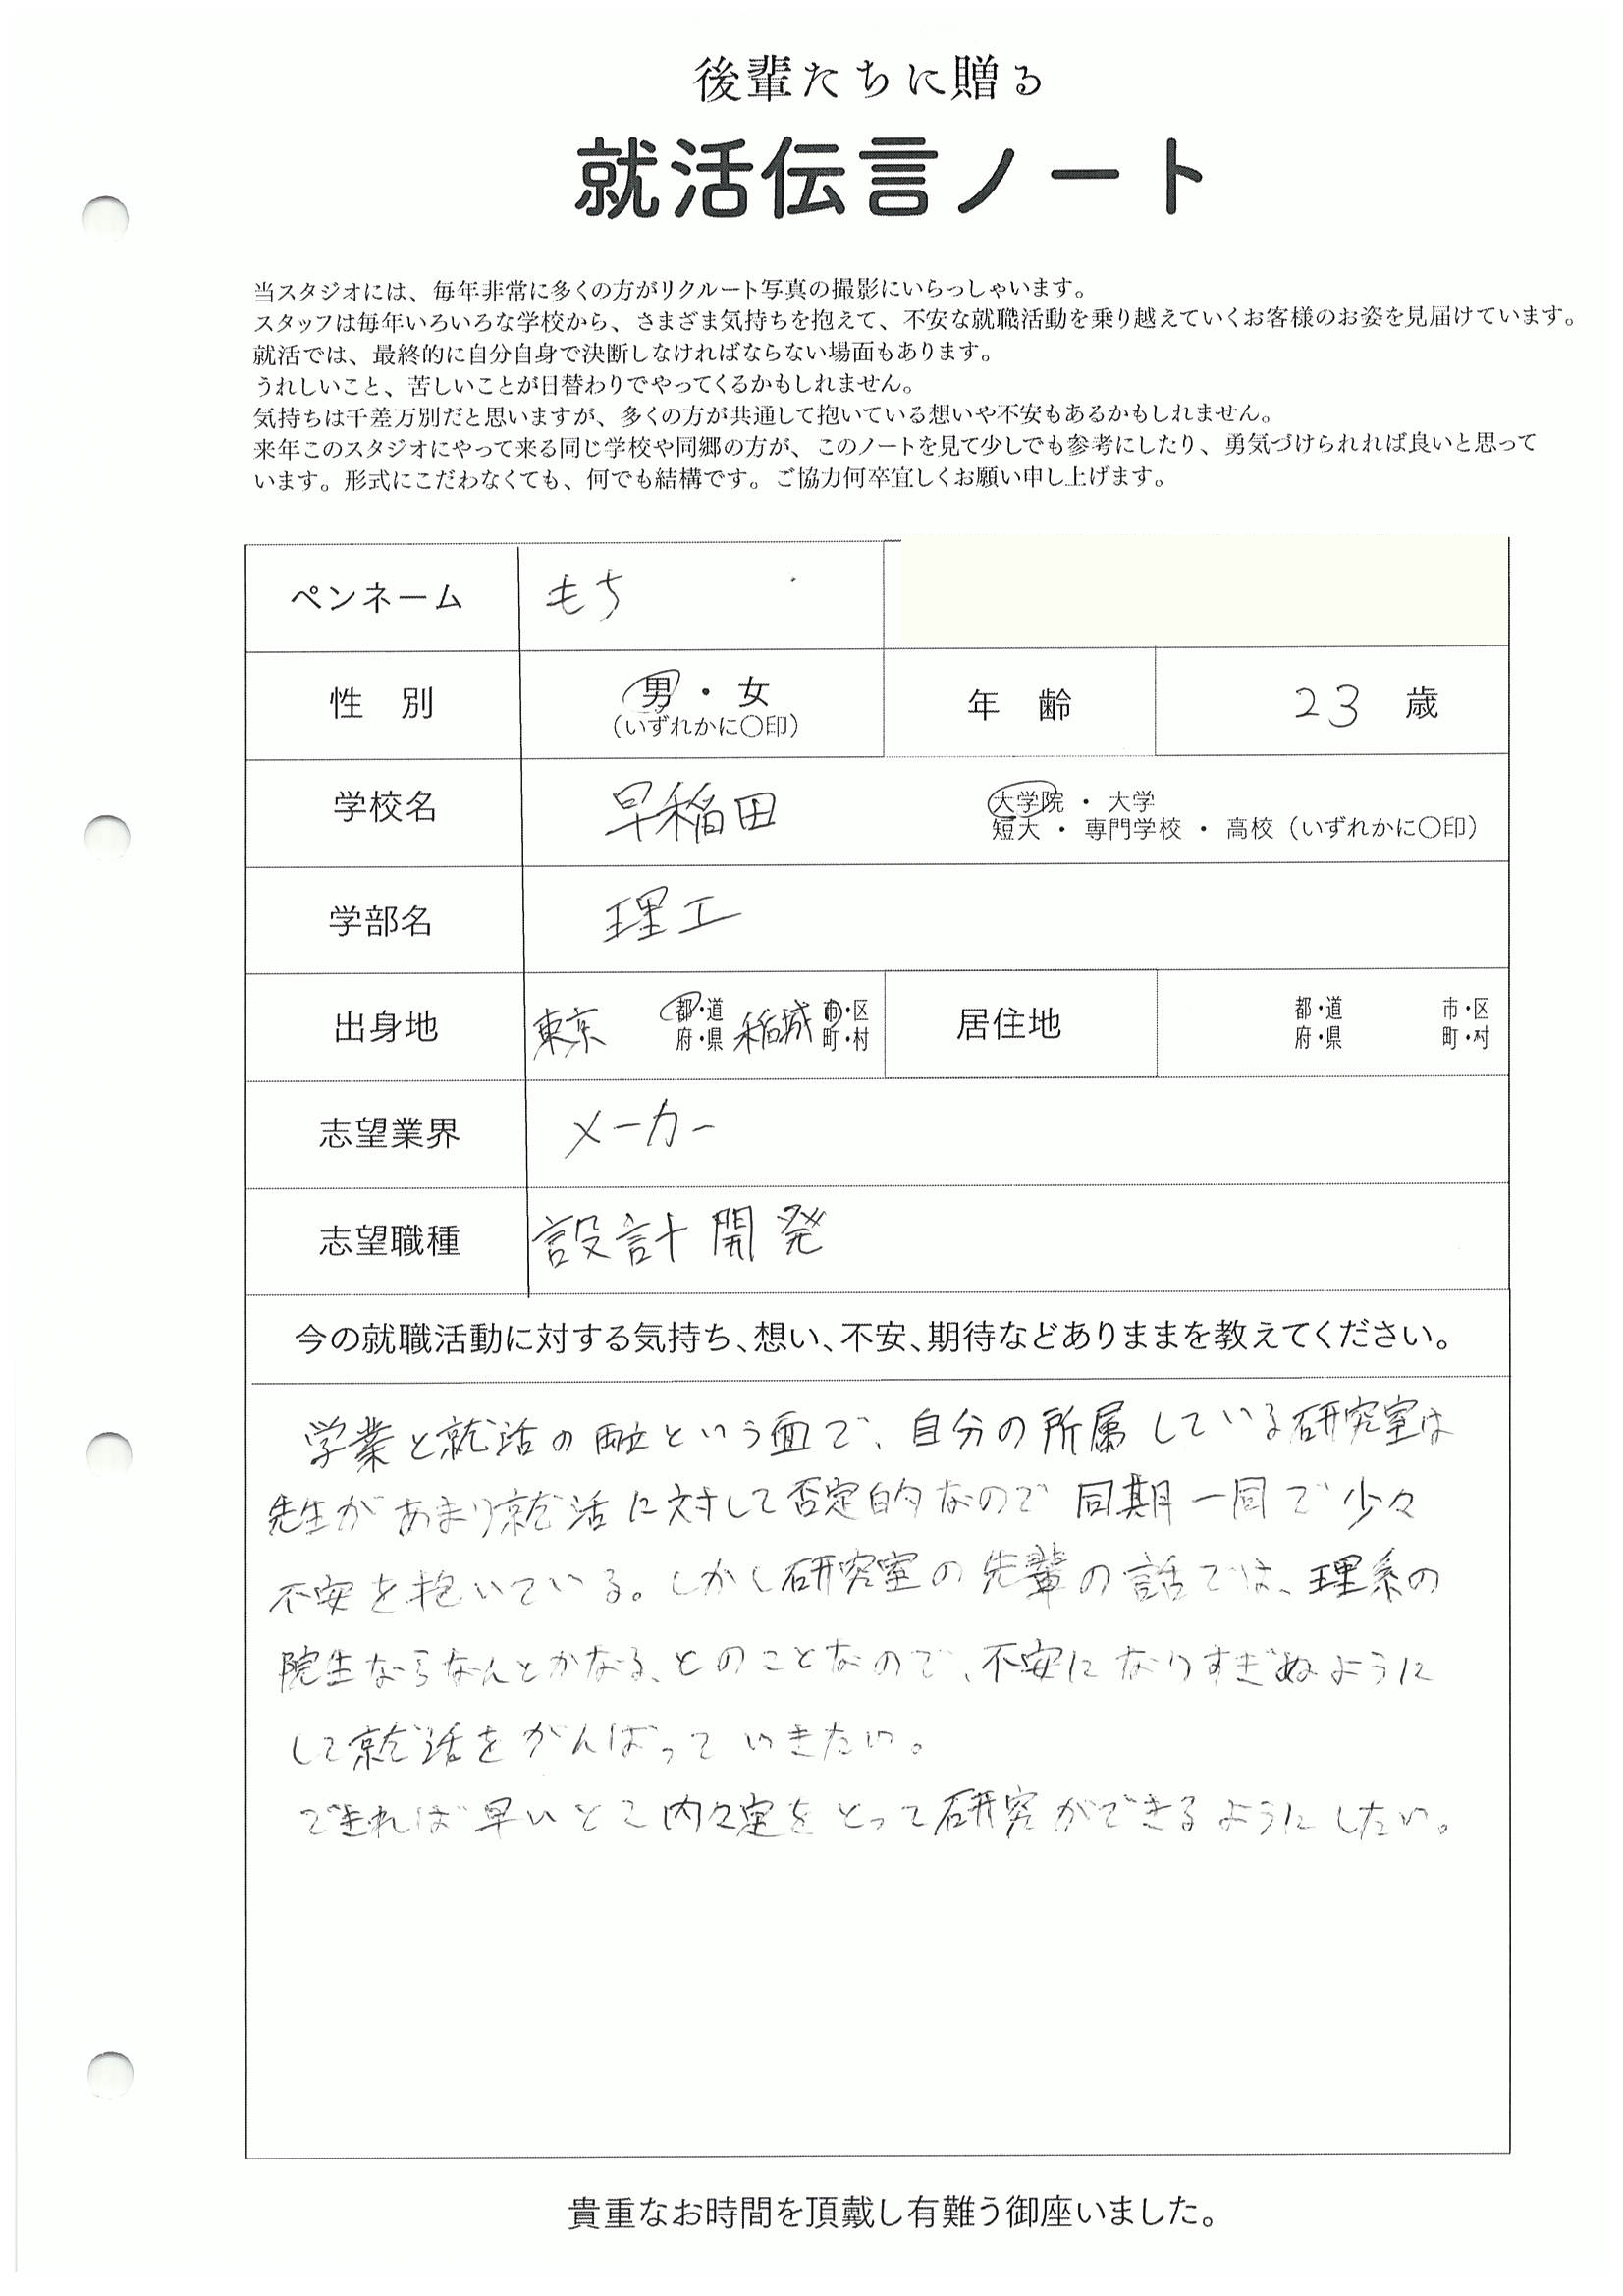 後輩たちに贈る
就活伝言ノート
当スタジオには、毎年非常に多くの方がリクルート写真の撮影にいらっしゃいます。
スタッフは毎年いろいろな学校から、さまざま気持ちを抱えて、不安な就職活動を乗り越えていくお客様のお姿を見届けています。
就活では、最終的に自分自身で決断しなければならない場面もあります。
うれしいこと、苦しいことが日替わりでやってくるかもしれません。
気持ちは千差万別だと思いますが、多くの方が共通して抱いている想いや不安もあるかもしれません。
来年このスタジオにやって来る同じ学校や同郷の方が、このノートを見て少しでも参考にしたり、勇気づけられれば良いと思って
います。形式にこだわなくても、何でも結構です。ご協力何卒宜しくお願い申し上げます。
ペンネーム もち
性 別 男・女 年 齢 23 歳
(いずれかに〇印)
学校名 早稲田 大学院 ・ 大学
短大 ・ 専門学校 ・ 高校 (いずれかに〇印)
学部名 理工
出身地 東京 都・道 稲城 市・区 居住地 都・道 市・区
府・県 町・村 府・県 町・村
志望業界 メーカー
志望職種 設計開発
今の就職活動に対する気持ち、想い、不安、期待などありままを教えてください。
学業と就活の両立という面で、自分の所属している研究室は
先生があまり就活に対して否定的なので同期一同で少々
不安を抱いている。しかし研究室の先輩の話では、理系の
院生ならなんとかなる、とのことなので、不安になりすぎぬように
して就活をがんばっていきたい。
できれば早いとこ内々定をとって研究ができるようにしたい。
貴重なお時間を頂戴し有難う御座いました。